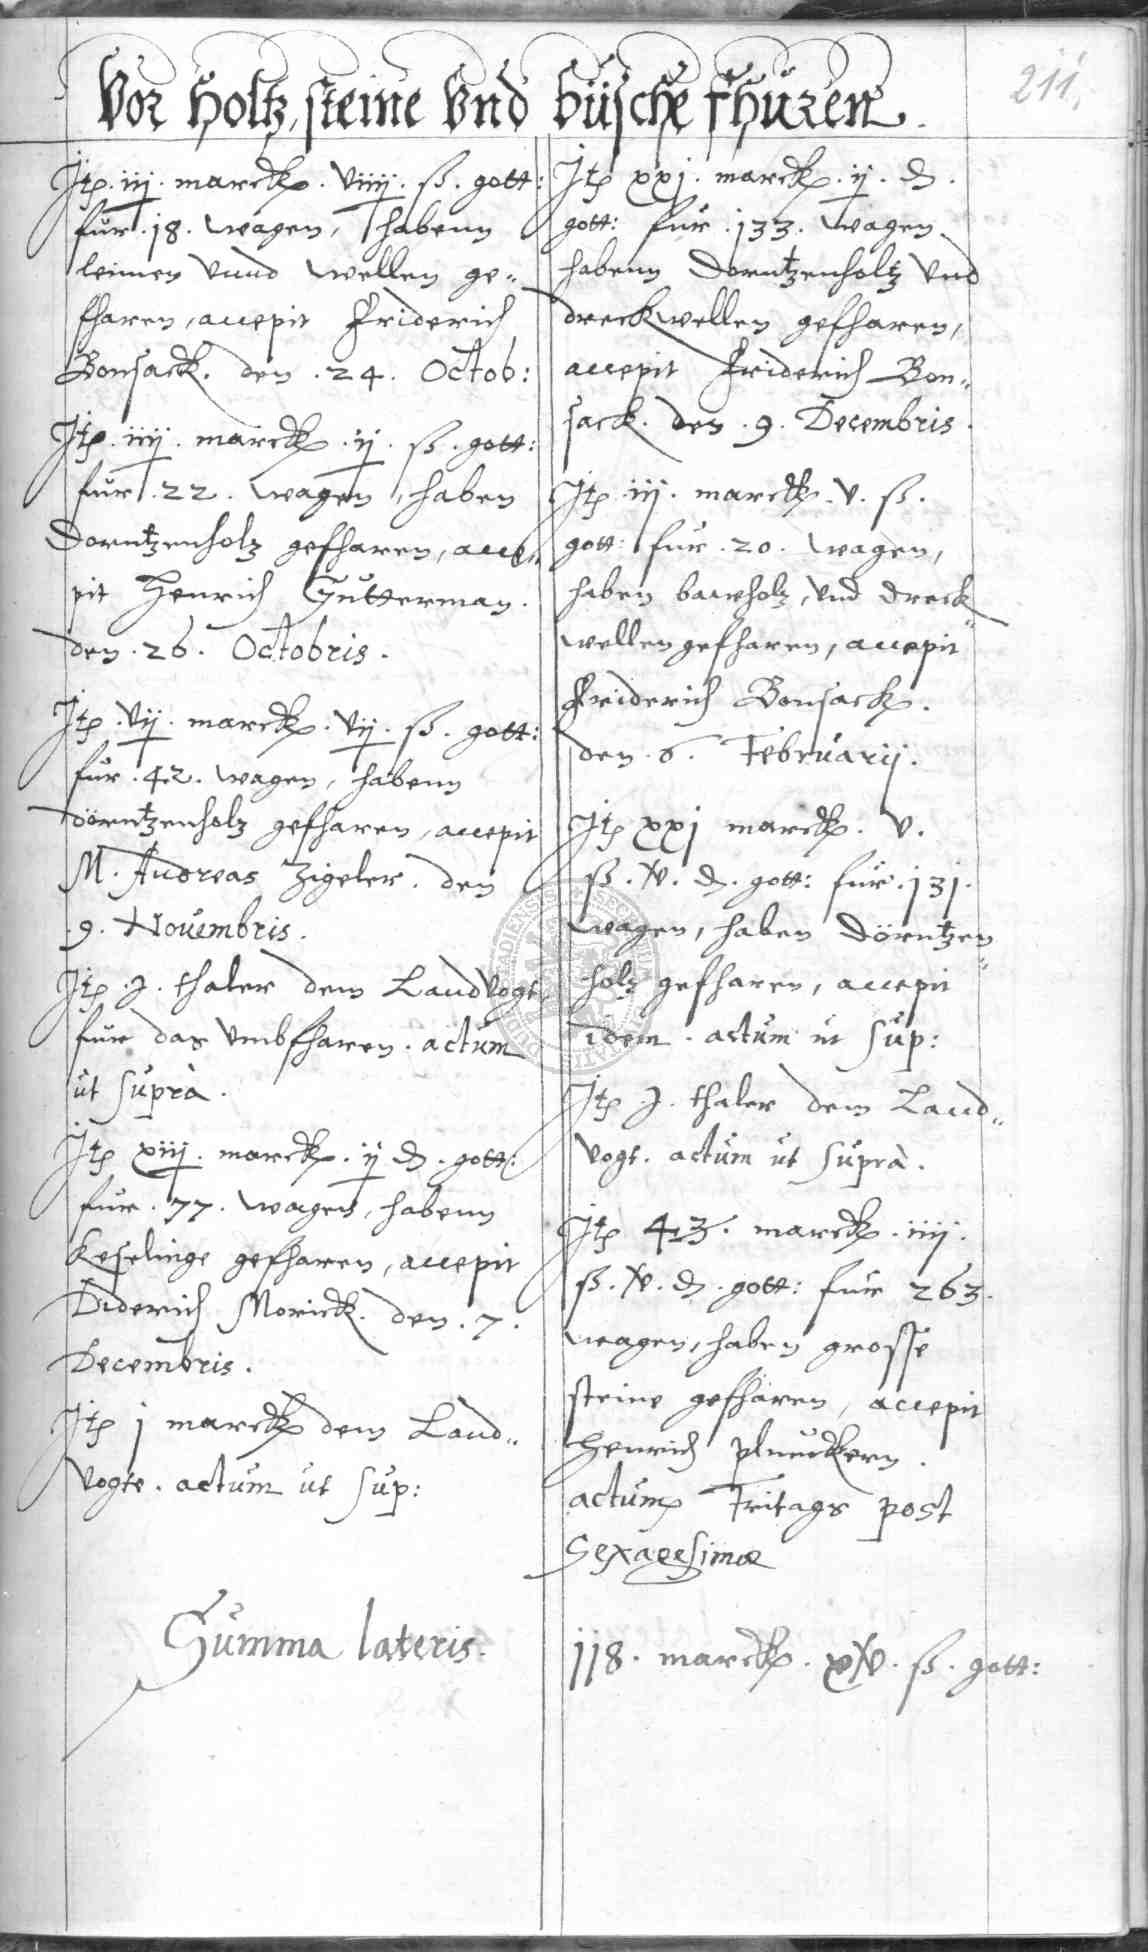 Vor Holtz, steine Vnd büsche fhuren.
211.
Itp. iij. marckp. viiij. ß. gott:
für .18. wagen, habenn
leimen vnnd wellen ge„
fharen, accepit Friderich
Bonsack. den .24. Octob:
Itp. iiij. marckp. ij. ß. gott:
für .22. wagen, haben
Dorntzenholz gefharen, acce„
pit Henrich Gütterman.
den .26. Octobris.
Itp. vij. marckp. vij. ß. gott:
für .42. wagen, habenn
dörntzenholz gefharen, accepit
M. Andreas Zigeler. den
.9. Novembris.
Itp. j. thaler dem Landvogt
für das vmbfharen. actum
ut supra.
Itp xiij. marckp. ij ₰. gott:
für .77. wagen, habenn
Keselinge gefharen, accepit
Diderich Morick. den .7.
Decembris.
Itp j marckp dem Land„
vogte. actum ut sup:
Itp xxj. marckp. ij. ₰.
gott: für .133. wagen.
habenn Dorntzenholtz vnd
dreckwellen gefharen,
accepit Friderich Bon„
sack. den .9. Decembris.
Itp. iij. marckp. v. ß.
gott: für .20. wagen,
haben bawholz, vnd dreck„
wellen gefharen, accepit
Friderich Bonsack.
den .6. Februarij.
Itp xxj marckp. v.
ß. v. ₰. gott: für .131.
wagen, haben dörntzen„
holz gefharen, accepit
idem. actum ut sup:
Itp .j. thaler dem Land„
vogt. actum ut supra.
Itp 43. marckp. iiij.
ß. v. ₰. gott: für 263.
wagen, haben grosse
steine gefharen, accepit
Henrich pluckern.
actum Fritags post
Sexagesimæ
Summa lateris.
118. marckp. xv. ß. gott: